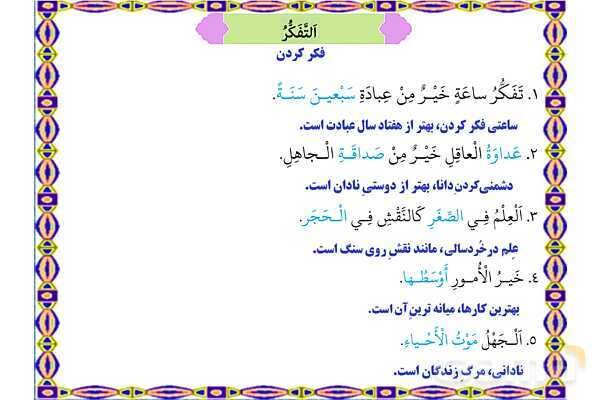 اَلتَّفَكُّرُ
فکر کردن
۱. تَفَكُّرُ ساعَةٍ خَيْـرٌ مِنْ عِبادَةِ سَبْعيـنَ سَنَـةً.
ساعتی فکر کردن، بهتر از هفتاد سال عبادت است.
۲. عَداوَةُ الْعاقِلِ خَيْـرٌ مِنْ صَداقَـةِ الْـجاهِلِ.
دشمنی‌کردن دانا، بهتر از دوستیِ نادان است.
۳. اَلْعِلْمُ فِـي الصِّغَرِ كَالنَّقْشِ فِـي الْـحَجَرِ.
عِلم در خُردسالی، مانند نقشِ روی سنگ است.
٤. خَيـرُ الْأُمـورِ أَوْسَطُـها.
بهترین کارها، میانه ترینِ آن است.
۵. اَلْـجَهْلُ مَوْتُ الْأَحْيـاءِ.
نادانی، مرگِ زندگان است.